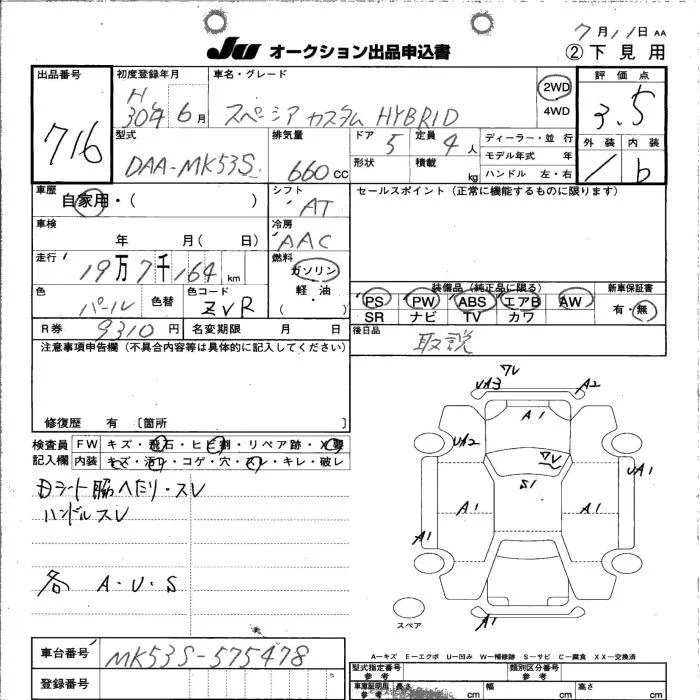 7月11日 AA
JU オークション出品申込書 ②下見用
出品番号 初度登録年月 車名・グレード 評価点
716 H30年6月 スペーシア カスタム HYBRID 2WD 4WD 3.5
型式 排気量 ドア 定員 ディーラー・並行 外装 内装
DAA-MK53S 660cc 5 4人 モデル年式 年 1 b
形状 積載 kg ハンドル 左・右
車歴 自家用・( ) シフト AT セールスポイント(正常に機能するものに限ります)
車検 年 月( 日) 冷房 AAC
走行 19万7千164km 燃料 ガソリン 軽・油 ( )
色 パール 色替 色コード ZVR
装備品(純正品に限る) 新車保証書
PS PW ABS エアB AW 有・無
SR ナビ TV カワ
R券 9310円 名変期限 月 日 後日品 取説
注意事項申告欄(不具合内容等は具体的に記入してください)
修復歴 有 〔箇所 〕
検査員記入欄 FW キズ・飛石・ヒビ割・リペア跡・X要
内装 キズ・汚れ・コゲ・穴・スレ・キレ・破レ
Dシート脇へたり・スレ
ハンドルスレ
各 A・U・S
ワレ
UA3 A2
A1
UA2 ワレ
S1 UA1
A1 A1
A1
A1
スペア
A-キズ E-エクボ U-凹み W-補修跡 S-サビ C-腐食 XX-交換済
車台番号 MK53S-575478
登録番号
型式指定番号 参考 類別区分番号 参考
車庫証明用 参考 長さ cm 幅 cm 高さ cm